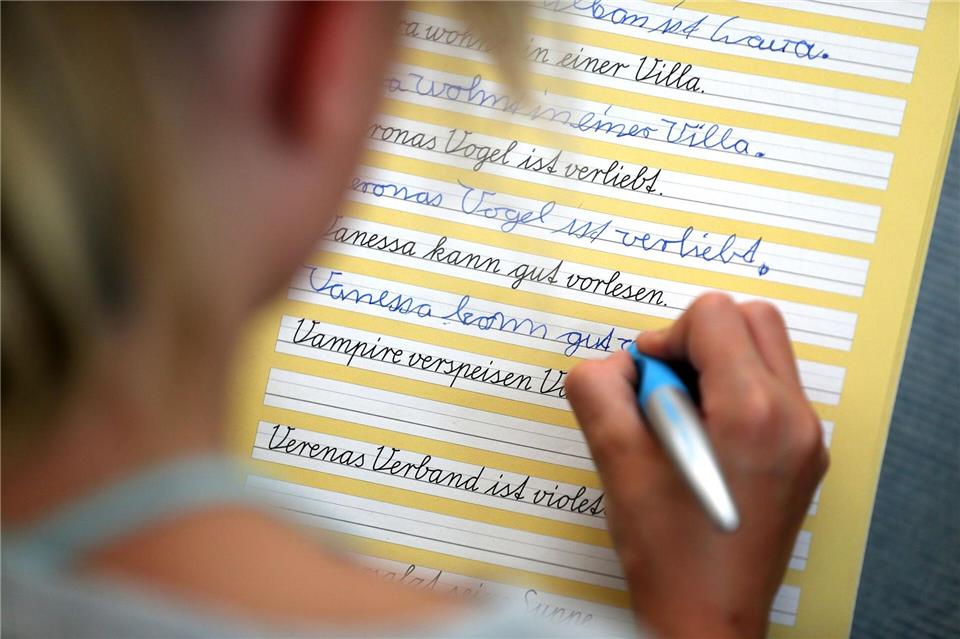 ist
wohn in einer Villa.
wohnt in einer Villa.
ronas Vogel ist verliebt.
eronas Vogel ist verliebt.
Vanessa kann gut vorlesen.
Vanessa kann gut
Vampire verspeisen V
Verenas Verband ist violet
salzt seine Suppe